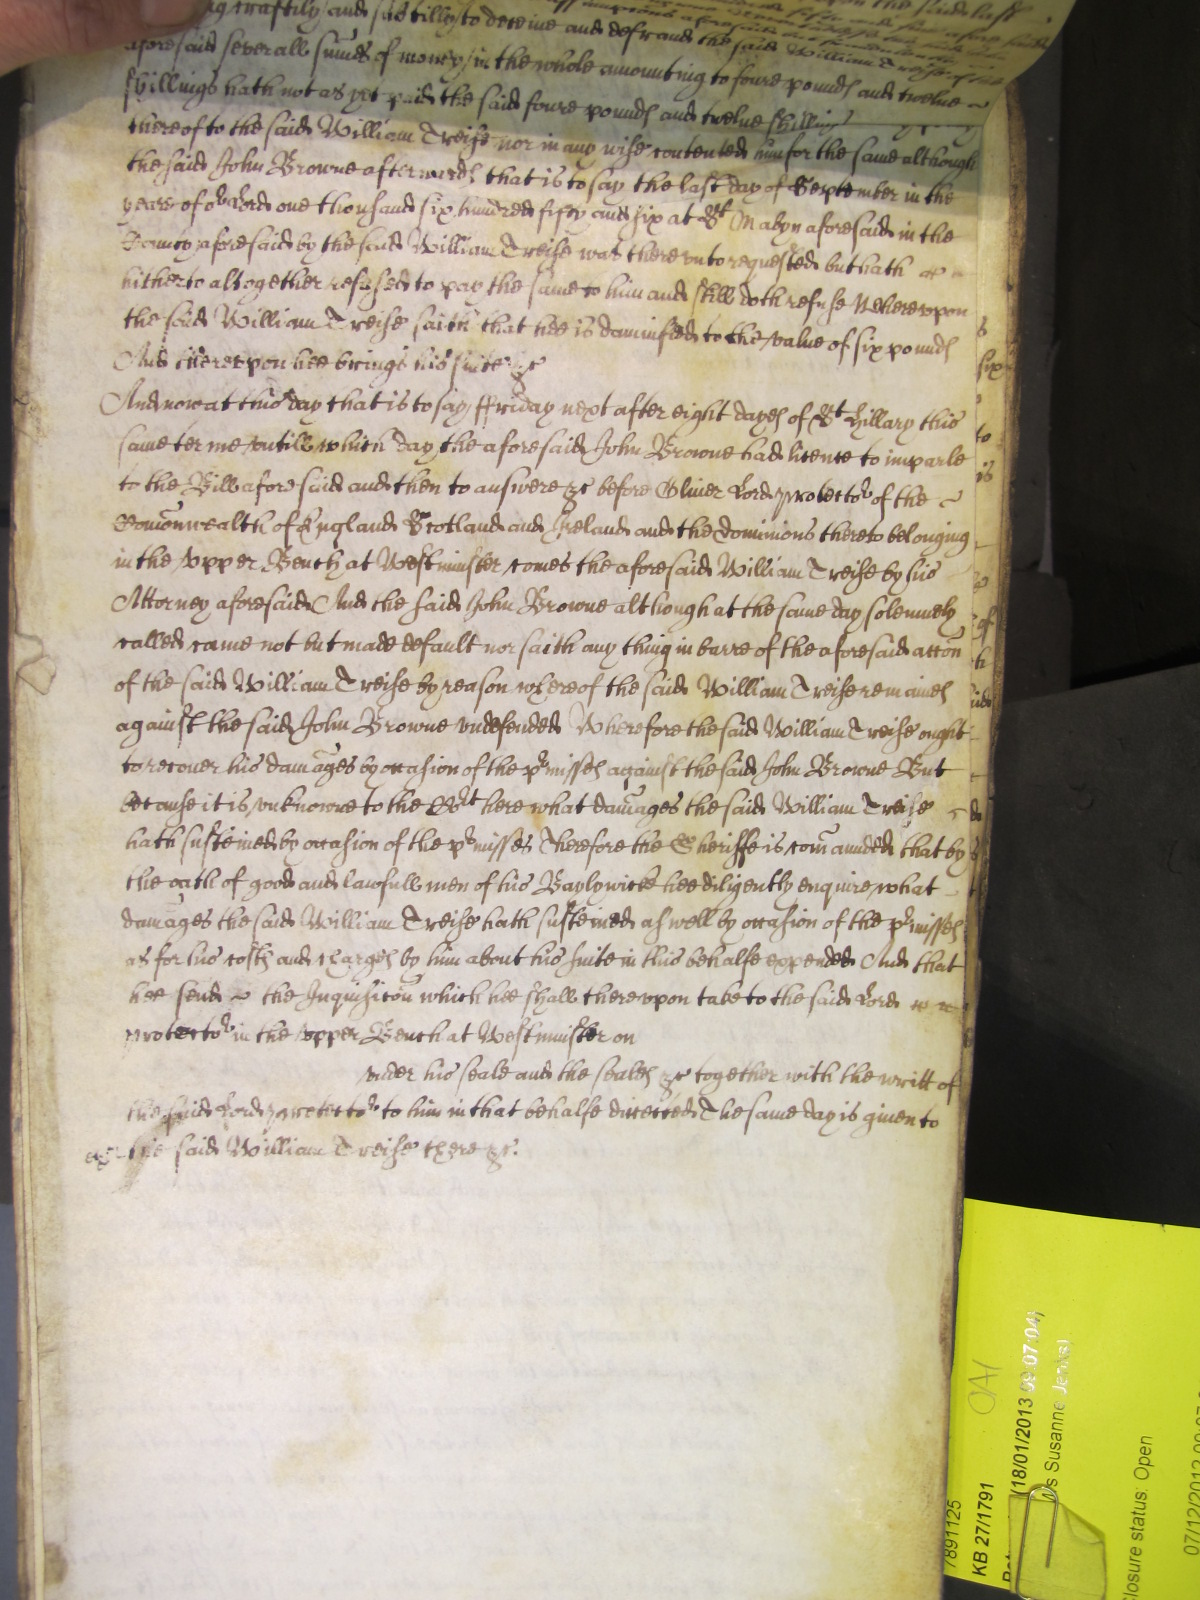 craftily and subtilly to deceive and defraud the said William Treise of the
aforesaid severall sumes of money in the whole amounting to foure pounds and twelve
shillings hath not as yet paid the said foure pounds and twelve shillings
thereof to the said William Treise nor in any wise contented him for the same although
the said John Browne afterwards that is to say the last day of September in the
yeare of or Lord one thousand six hundred fifty and six at St Mabyn aforesaid in the
County aforesaid by the said William Treise was thereunto requested but hath
hitherto altogether refused to pay the same to him and still doth refuse Whereupon
the said William Treise saith that hee is damnified to the value of six pounds
And thereupon hee brings his suite &c
And now at this day that is to say ffriday next after eight dayes of St Hillary this
same terme untill which day the aforesaid John Browne had licence to imparle
to the Bill aforesaid and then to answere &c before Oliver Lord Protector of the
Comonwealth of England Scotland and Ireland and the dominions thereto belonging
in the Upper Bench at Westminster comes the aforesaid William Treise by his
Attorney aforesaid And the said John Browne although at the same day solemnely
called came not but made default nor saith any thing in barre of the aforesaid accon
of the said William Treise by reason whereof the said William Treise remaines
against the said John Browne undefended Wherefore the said William Treise ought
to recover his damages by occasion of the pmisses against the said John Browne But
because it is unknowne to the Cort here what damages the said William Treise
hath susteined by occasion of the pmisses Therefore the Sheriffe is comaunded that by
the oath of good and lawfull men of his Baylywicke hee diligently enquire what
damages the said William Treise hath susteined as well by occasion of the pmisses
as for his costs and charges by him about his suite in this behalfe expended And that
hee send the Inquisicon which hee shall thereupon take to the said Lord
Protector in the upper Bench at Westminster on
under his seale and the seales &c together with the writt of
the said Lord Protector to him in that behalfe directed The same day is given to
the said William Treise there &c.
six
to
is
of
7891125
KB 27/1791
(18/01/2013 09:07:04)
Susanne Jenks)
Closure status: Open